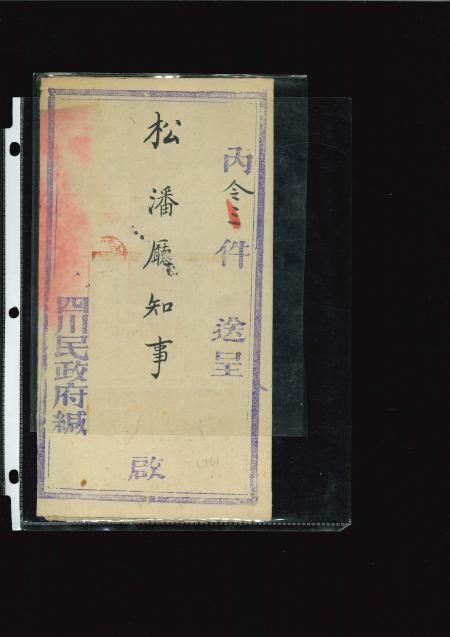 內令三件 送呈
松潘廳知事 啟
四川民政府緘